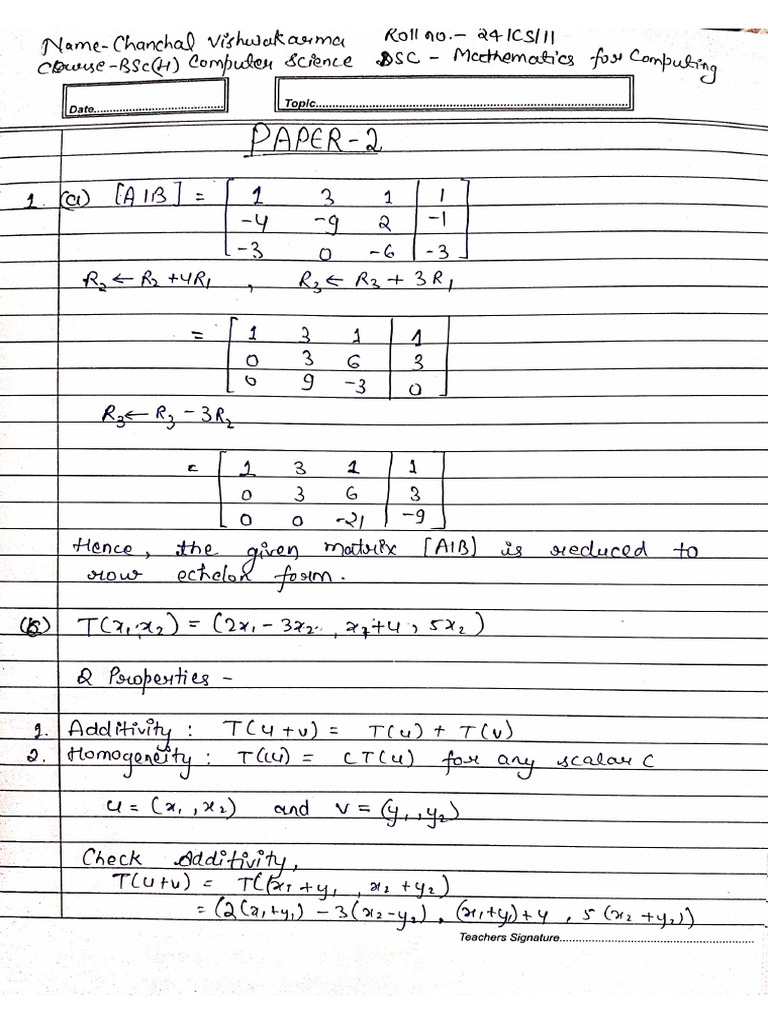 Name-Chanchal Vishwakarma Roll no.- 24/CS/11
Course-BSc(H) Computer Science DSC - Mathematics for Computing
Date.......... Topic..........
PAPER-2
1. (a) [A|B] = [ 1 3 1 | 1
-4 -9 2 | -1
-3 0 -6 | -3 ]
R₂ ← R₂ + 4R₁ , R₃ ← R₃ + 3R₁
= [ 1 3 1 | 1
0 3 6 | 3
0 9 -3 | 0 ]
R₃ ← R₃ - 3R₂
= [ 1 3 1 | 1
0 3 6 | 3
0 0 -21 | -9 ]
Hence, the given matrix [A|B] is reduced to
row echelon form.
(b) T(x₁, x₂) = (2x₁ - 3x₂, x₁+4, 5x₂)
2 Properties -
1. Additivity : T(u+v) = T(u) + T(v)
2. Homogeneity : T(cu) = cT(u) for any scalar c
u = (x₁, x₂) and v = (y₁, y₂)
Check Additivity,
T(u+v) = T(x₁ + y₁ , x₂ + y₂)
= (2(x₁+y₁) - 3(x₂-y₂), (x₁+y₁)+4 , 5(x₂+y₂))
Teachers Signature..........